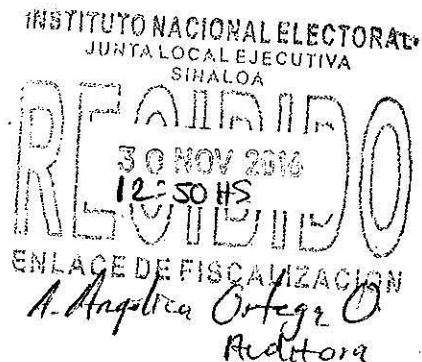 INSTITUTO NACIONAL ELECTORAL
JUNTA LOCAL EJECUTIVA
SINALOA
RECIBIDO
30 NOV 2016
12:50 HS
ENLACE DE FISCALIZACIÓN
A. Angélica Ortega O
Auditora